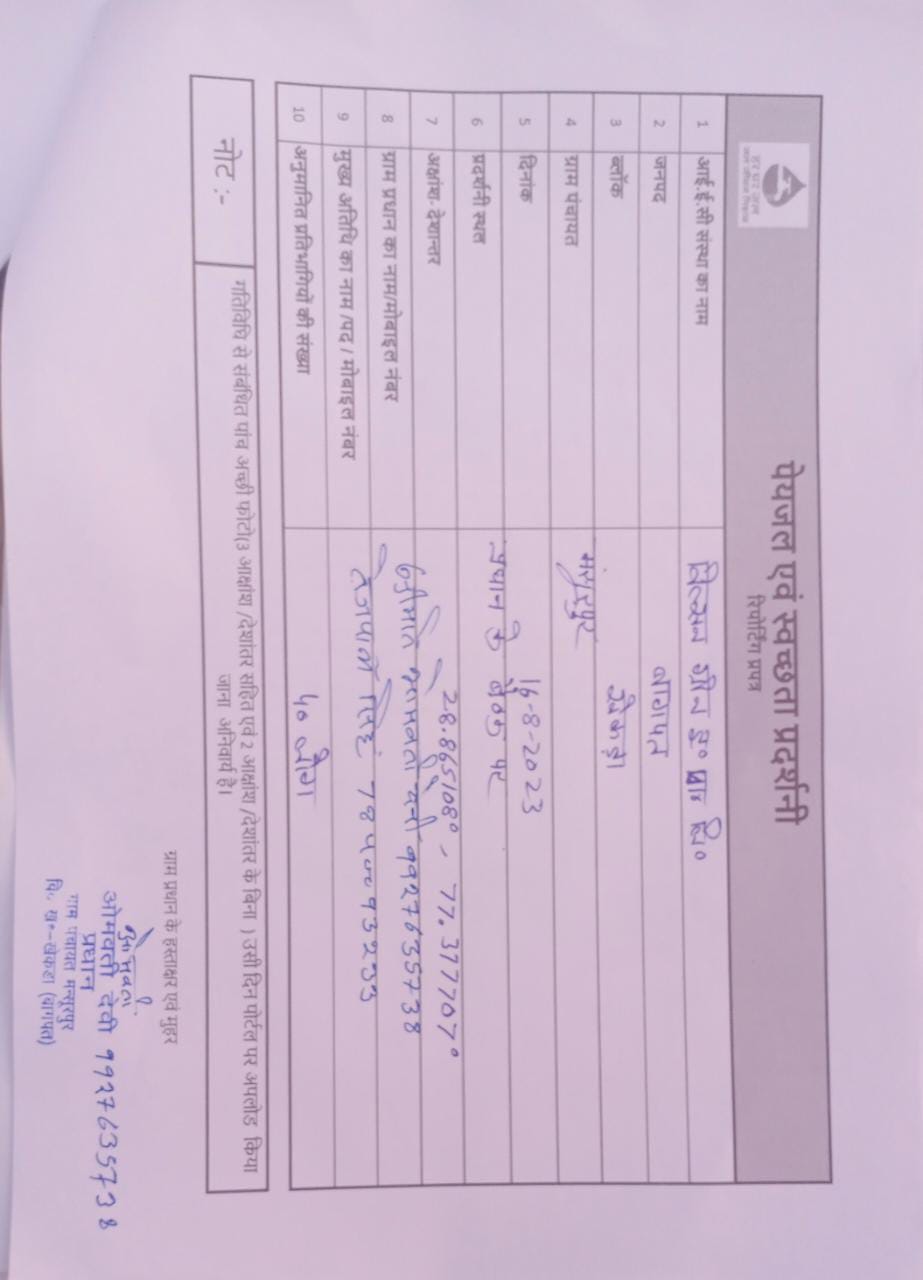 पेयजल एवं स्वच्छता प्रदर्शनी
रिपोर्टिंग प्रपत्र
1 आई.ई.सी संस्था का नाम
2 जनपद बागपत
3 ब्लॉक खेकड़ा
4 ग्राम पंचायत मंसूरपुर
5 दिनांक 16-8-2023
6 प्रदर्शनी स्थल प्रधान के बैठक पर
7 अक्षांश- देशान्तर 28.865108° - 77.377707°
8 ग्राम प्रधान का नाम/मोबाइल नंबर श्रीमति ओमवती देवी ९९२७६३५७३8
9 मुख्य अतिथि का नाम /पद / मोबाइल नंबर तेजपाल सिंह
10 अनुमानित प्रतिभागियों की संख्या ५० लोग
नोट :- गतिविधि से संबंधित पांच अच्छी फोटो(3 आक्षांश /देशांतर सहित एवं 2 आक्षांश /देशांतर के बिना ) उसी दिन पोर्टल पर अपलोड किया
जाना अनिवार्य है।
ग्राम प्रधान के हस्ताक्षर एवं मुहर
ओमवती
ओमवती देवी ९९२७६३५७३8
प्रधान
ग्राम पंचायत मन्सूरपुर
वि. ख॰-खेकडा (बागपत)